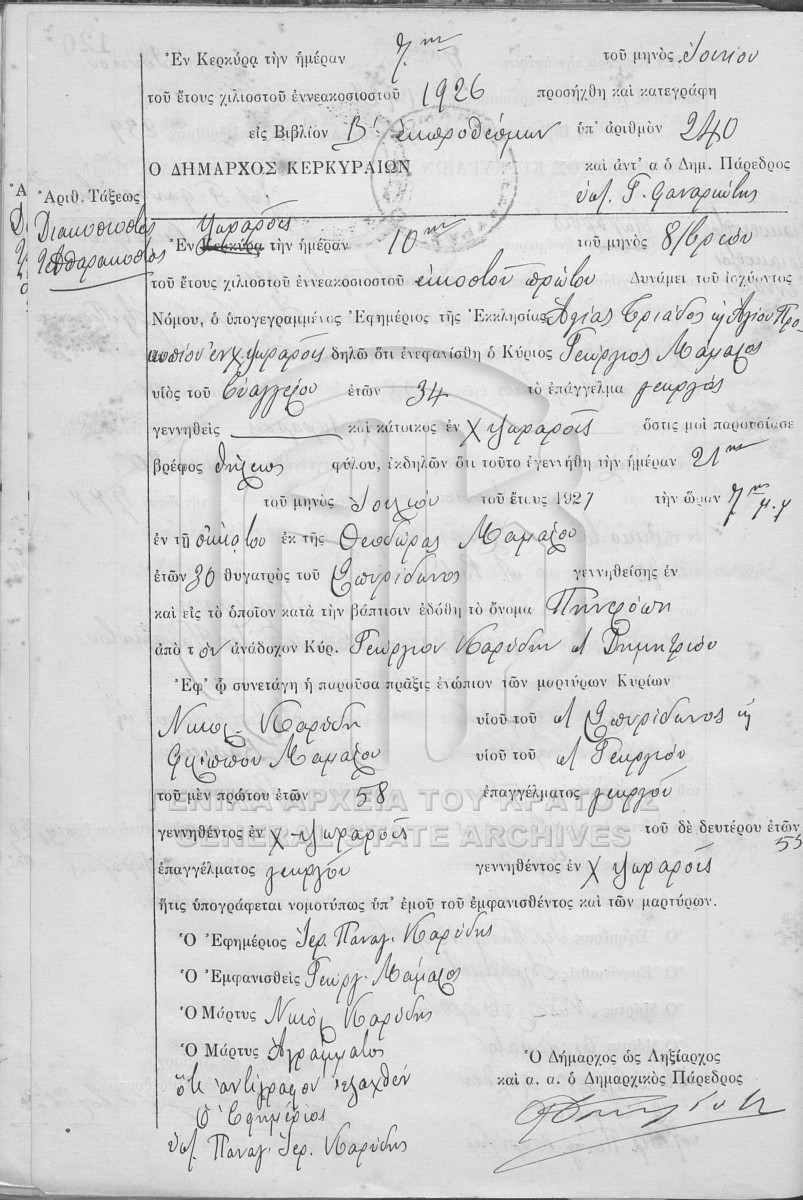 Ἐν Κερκύρᾳ τὴν ἡμέραν 7ην τοῦ μηνὸς Ἰουνίου
τοῦ ἔτους χιλιοστοῦ ἐννεακοσιοστοῦ 1926 προσήχθη καὶ κατεγράφη
εἰς Βιβλίον Β' ἐκπροθέσμων ὑπ' ἀριθμὸν 240
Ο ΔΗΜΑΡΧΟΣ ΚΕΡΚΥΡΑΙΩΝ καὶ ἀντ' α ὁ Δημ. Πάρεδρος
Ἀριθ. Τάξεως ὑπ. Γ.
Διακόσιοστὸς
Ψωραροῖς
Ἐν Κερκύρᾳ τὴν ἡμέραν 10ην τοῦ μηνὸς 8/βρίου
τοῦ ἔτους χιλιοστοῦ ἐννεακοσιοστοῦ εἰκοστοῦ πρώτου Δυνάμει τοῦ ἰσχύοντος
Νόμου, ὁ ὑπογεγραμμένος Ἐφημέριος τῆς Ἐκκλησίας Ἁγίας Τριάδος ἢ Ἁγίου Προ
κοπίου ἐν χ. Ψωραροῖς δηλῶ ὅτι ἐνεφανίσθη ὁ Κύριος Γεώργιος Μάμαλος
υἱὸς τοῦ Εὐαγγέλου ἐτῶν 34 τὸ ἐπάγγελμα γεωργός
γεννηθεὶς καὶ κάτοικος ἐν χ Ψωραροῖς ὅστις μοὶ παρουσίασε
βρέφος θήλεος φύλου, ἐκδηλῶν ὅτι τοῦτο ἐγεννήθη τὴν ἡμέραν 21ην
τοῦ μηνὸς Ἰουλίου τοῦ ἔτους 1921 τὴν ὥραν 7ην μ.μ
ἐν τῇ οἰκίᾳ του ἐκ τῆς Θεοδώρας Μαμάλου
ἐτῶν 30 θυγατρὸς τοῦ Σπυρίδωνος γεννηθείσης ἐν
καὶ εἰς τὸ ὁποῖον κατὰ τὴν βάπτισιν ἐδόθη τὸ ὄνομα Πηνελόπη
ἀπὸ τὸν ἀνάδοχον Κύρ. Γεώργιον Καρύδην Δημητρίου
Ἐφ' ᾧ συνετάγη ἡ παροῦσα πρᾶξις ἐνώπιον τῶν μαρτύρων Κυρίων
Νικολ. Καρύδη υἱοῦ τοῦ Σπυρίδωνος
Φιλίππου Μαμάλου υἱοῦ τοῦ Γεωργίου
τοῦ μὲν πρώτου ἐτῶν 58 ἐπαγγέλματος γεωργοῦ
ΓΕΝΙΚΑ ΑΡΧΕΙΑ ΤΟΥ ΚΡΑΤΟΥΣ
GENERAL STATE ARCHIVES
γεννηθέντος ἐν χ Ψωραροῖς τοῦ δὲ δευτέρου ἐτῶν 55
ἐπαγγέλματος γεωργοῦ γεννηθέντος ἐν χ Ψωραροῖς
ἥτις ὑπογράφεται νομοτύπως ὑπ' ἐμοῦ τοῦ ἐμφανισθέντος καὶ τῶν μαρτύρων.
Ὁ Ἐφημέριος Ἱερ. Παναγ. Καρύδης
Ὁ Ἐμφανισθεὶς Γεώργ. Μάμαλος
Ὁ Μάρτυς Νικόλ Καρύδης
Ὁ Μάρτυς Ἀγράμματος
Ὁ Δήμαρχος ὡς Ληξίαρχος
καὶ α. α. ὁ Δημαρχικὸς Πάρεδρος
ὅτι ἀντίγραφον
Ὁ Ἐφημέριος
ὑπ. Παναγ. Ἱερ. Καρύδης